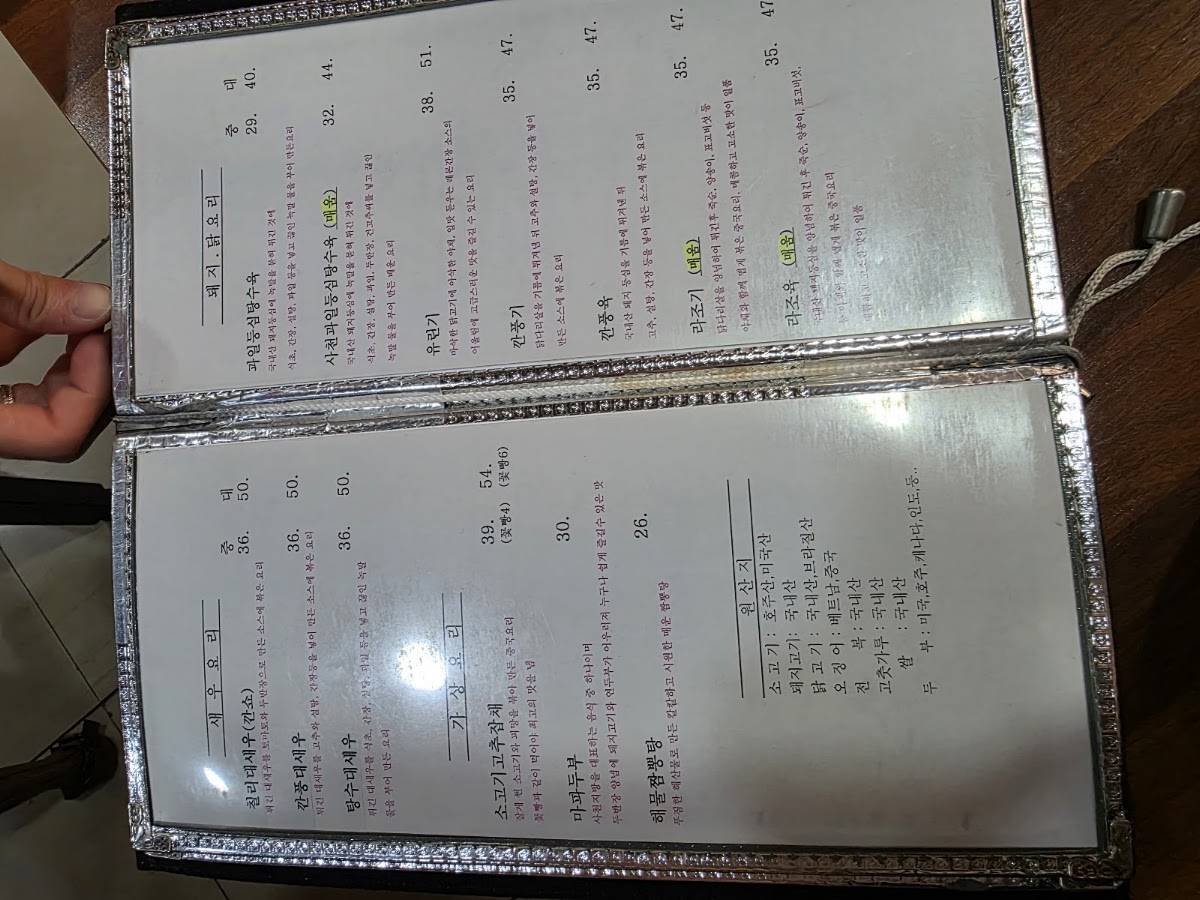 새 우 요 리
중 대
칠리대새우(깐쇼) 36. 50.
튀긴 대새우를 토마토와 두반장으로 만든 소스에 볶은 요리
깐풍대새우 36. 50.
튀긴 대새우를 고추와 설탕, 간장등을 넣어 만든 소스에 볶은 요리
탕수대새우 36. 50.
튀긴 대새우를 식초, 간장, 설탕, 과일 등을 넣고 끓인 녹말
물을 부어 만든 요리
가 상 요 리
소고기고추잡채 39. 54.
(꽃빵4) (꽃빵6)
잘게 썬 소고기와 피망을 볶아 만든 중국요리
꽃빵과 같이 먹어야 최고의 맛을 냄
마파두부 30.
사천지방을 대표하는 음식 중 하나이며
두반장 양념에 돼지고기와 연두부가 어우러져 누구나 쉽게 즐길수 있은 맛
해물짬뽕탕 26.
푸짐한 해산물로 만든 칼칼하고 시원한 매운 짬뽕탕
원 산 지
소 고 기 : 호주산,미국산
돼지고기 : 국내산
닭 고 기 : 국내산,브라질산
오 징 어 : 베트남,중국
전 복 : 국내산
고춧가루 : 국내산
쌀 : 국내산
두 부 : 미국,호주,캐나다,인도,등..
돼 지 . 닭 요 리
중 대
과일등심탕수육 29. 40.
국내산 돼지등심에 녹말을 묻혀 튀긴 것에
식초, 간장, 설탕, 과일 등을 넣고 끓인 녹말 물을 부어 만든요리
사천과일등심탕수육 (매움) 32. 44.
국내산 돼지등심에 녹말을 묻혀 튀긴 것에
식초, 간장, 설탕, 과일, 두반장, 건고추씨를 넣고 끓인
녹말 물을 부어 만든 매운 요리
유린기 38. 51.
바삭한 닭고기에 아삭한 야채, 입맛 돋우는 레몬간장 소스의
어울림에 고급스러운 맛을 즐길 수 있는 요리
깐풍기 35. 47.
닭다리살을 기름에 튀겨낸 뒤 고추와 설탕, 간장 등을 넣어
만든 소스에 볶은 요리
깐풍육 35. 47.
국내산 돼지 등심을 기름에 튀겨낸 뒤
고추, 설탕, 간장 등을 넣어 만든 소스에 볶은 요리
라조기 (매움) 35. 47.
닭다리살을 양념하여 튀긴후 죽순, 양송이, 표고버섯 등
야채와 함께 맵게 볶은 중국요리, 매콤하고 고소한 맛이 일품
라조육 (매움) 35. 47
국내산 돼지등심을 양념하여 튀긴 후 죽순, 양송이, 표고버섯,
함께 맵게 볶은 중국요리
매콤하고 고소한 맛이 일품